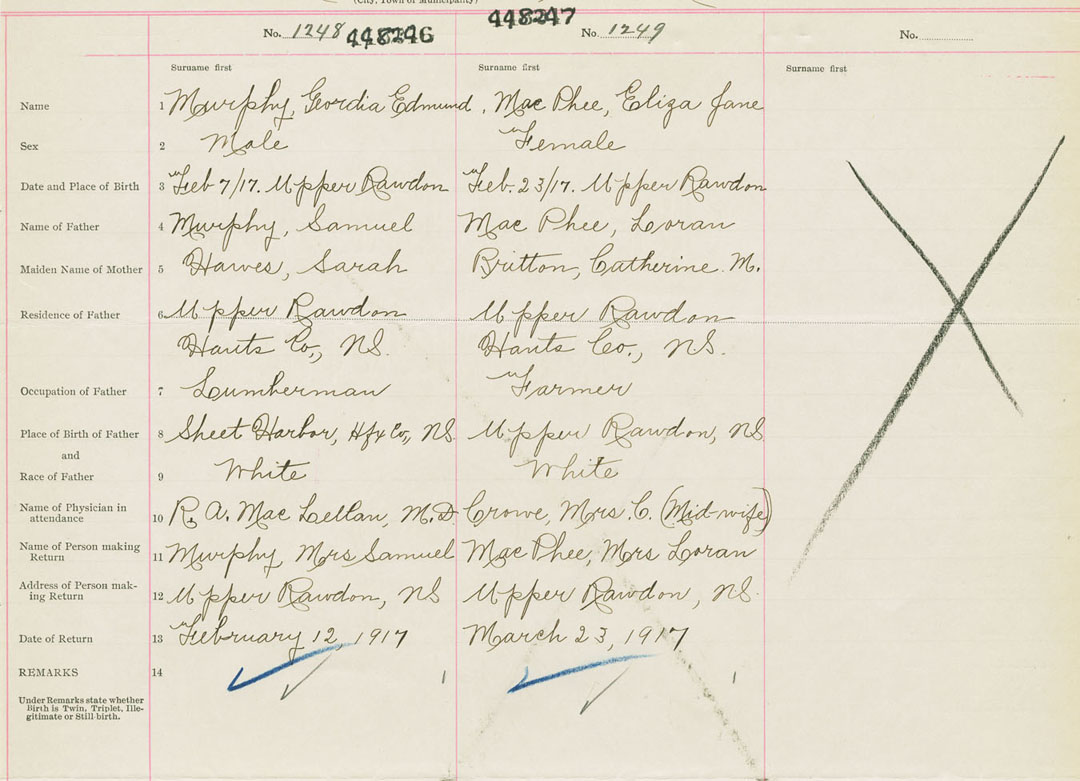 (City, Town or Municipality)
No. 1248 448246 448247 No. 1249 No.
Surname first Surname first Surname first
Name 1 Murphy, Gordia Edmund, Mac Phee, Eliza Jane
Sex 2 Male Female
Date and Place of Birth 3 Feb 7/17. Upper Rawdon Feb. 23/17. Upper Rawdon
Name of Father 4 Murphy, Samuel Mac Phee, Loran
Maiden Name of Mother 5 Hawes, Sarah Britton, Catherine. M.
Residence of Father 6 Upper Rawdon Upper Rawdon
Hants Co., NS. Hants Co., NS.
Occupation of Father 7 Lumberman Farmer
Place of Birth of Father 8 Sheet Harbor, Hfx Co., NS. Upper Rawdon, NS
and
Race of Father 9 White White
Name of Physician in
attendance 10 R. A. Mac Lellan, M.D. Crowe, Mrs. C. (Mid-wife)
Name of Person making
Return 11 Murphy, Mrs Samuel Mac Phee, Mrs Loran
Address of Person mak-
ing Return 12 Upper Rawdon, NS Upper Rawdon, NS.
Date of Return 13 February 12, 1917 March 23, 1917
REMARKS 14 1 1
Under Remarks state whether
Birth is Twin, Triplet, Ille-
gitimate or Still-birth.